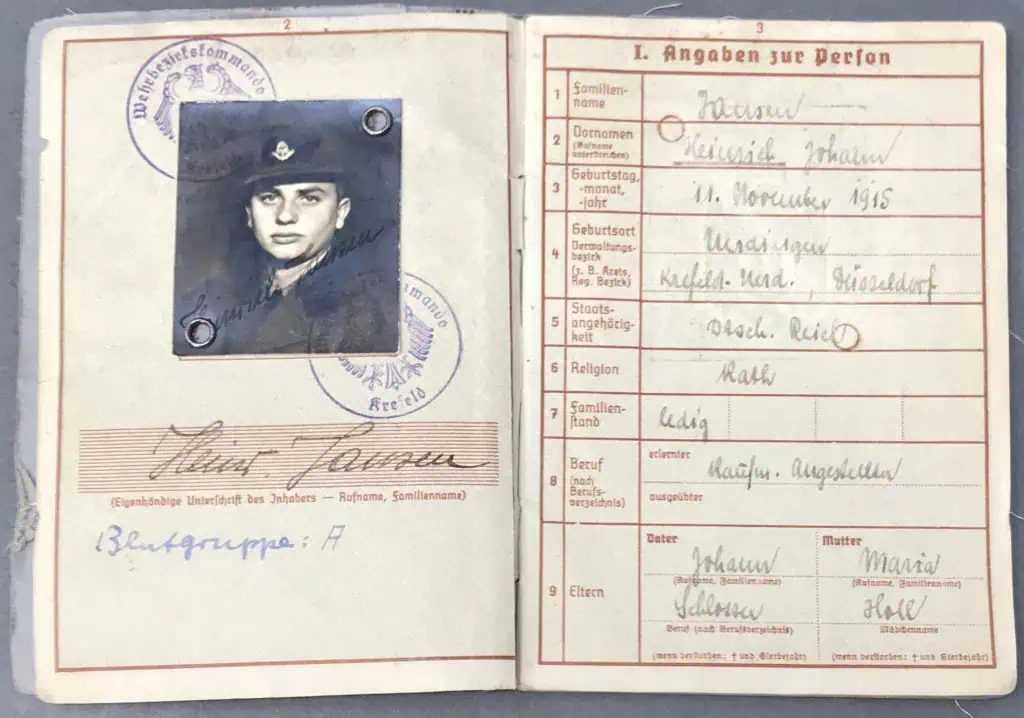 2
Wehrbezirkskommando
Krefeld
Krefeld
Heinr. Jansen
(Eigenhändige Unterschrift des Inhabers — Rufname, Familienname)
Blutgruppe: A
3
I. Angaben zur Person
1 Familien-
name
Jansen
2 Vornamen
(Rufname
unterstreichen)
Heinrich Johann
3 Geburtstag,
-monat,
-jahr
11. November 1915
4 Geburtsort
Verwaltungs-
bezirk
(z. B. Kreis,
Reg. Bezirk)
Uerdingen
Krefeld-Uerd., Düsseldorf
5 Staats-
angehörig-
keit
Dtsch. Reich
6 Religion
Kath
7 Familien-
stand
ledig
8 Beruf
(nach
Berufs-
verzeichnis)
erlernter
Kaufm. Angestellter
ausgeübter
9 Eltern
Vater
Johann
(Rufname, Familienname)
Schlosser
Beruf (nach Berufsverzeichnis)
(wenn verstorben: † und Sterbejahr)
Mutter
Maria
(Rufname, Familienname)
Holl
Mädchenname
(wenn verstorben: † und Sterbejahr)